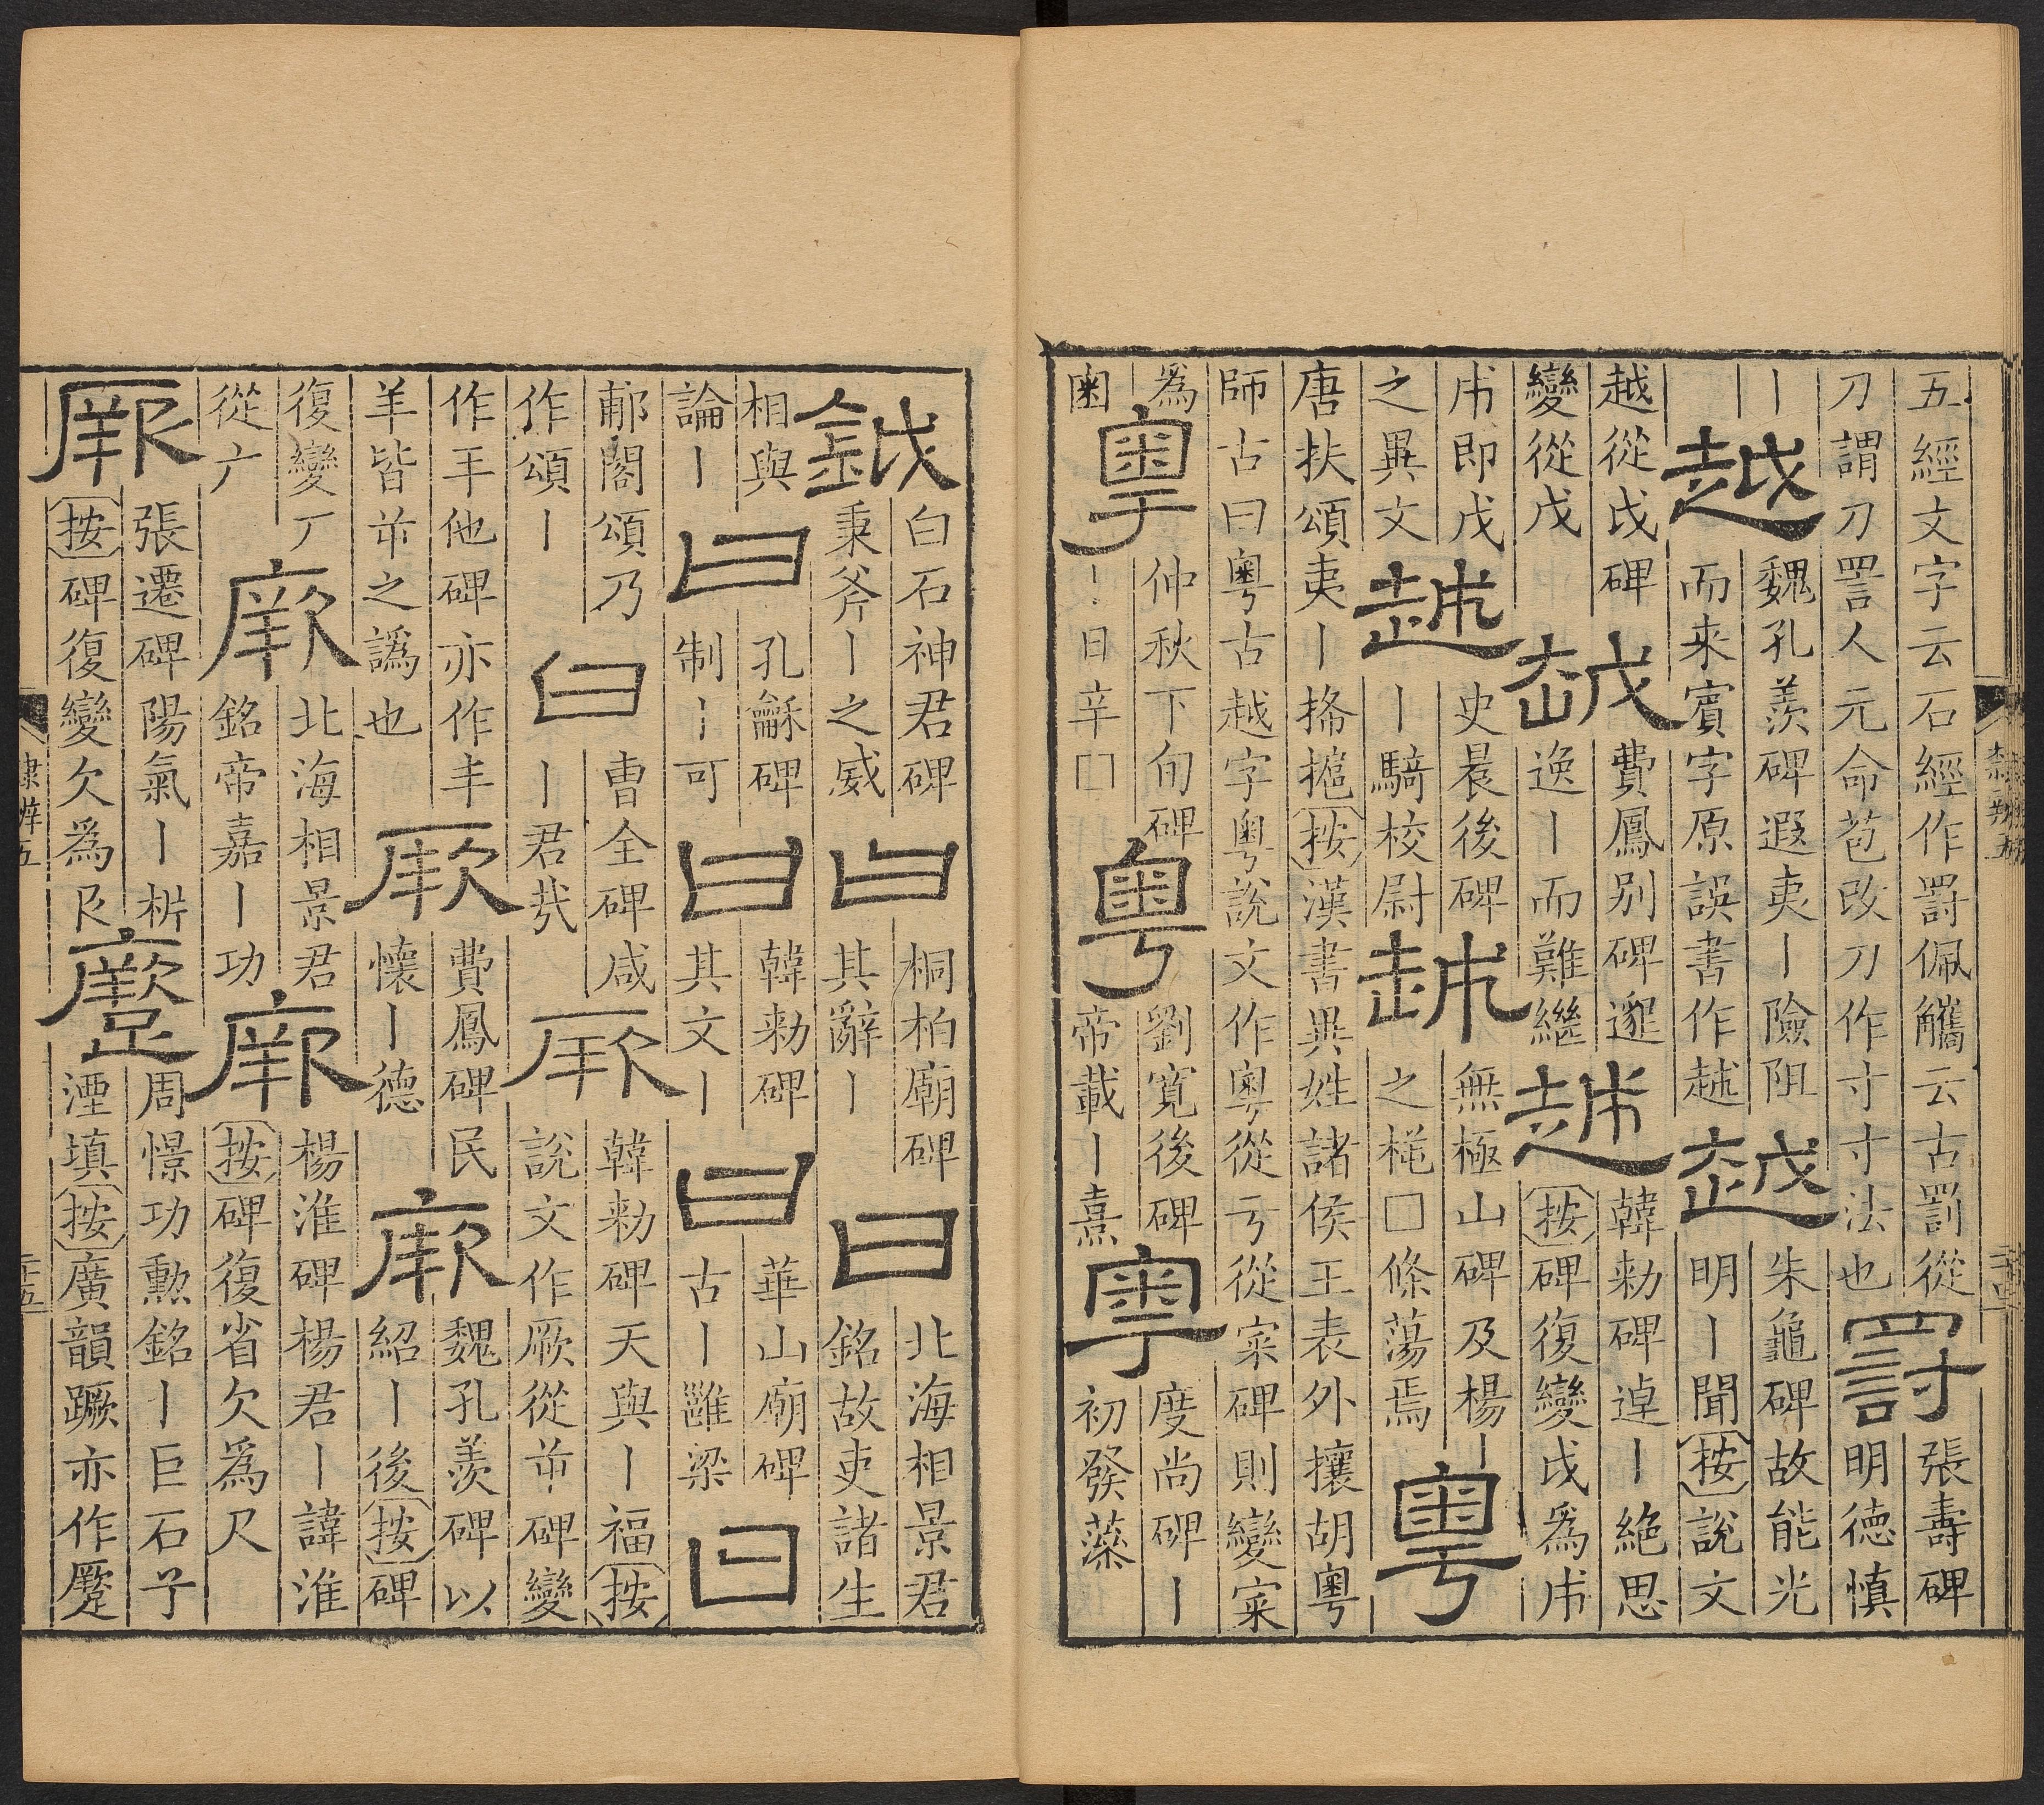 五經文字云石經作罸佩觿云古罰從
刀謂刀詈人元命苞改刀作寸寸法也
罰
張壽碑
明德慎
丨
越
魏孔羨碑遐夷丨險阻
而来賓字原誤書作越
越
朱龜碑故能光
明丨聞按說文
越從戉碑
變從戊
越
費鳳别碑邈
逸丨而難繼
越
韓勑碑逴丨絶思
按碑復變戉爲
即戊
之異文
越
史晨後碑
丨騎校尉
越
無極山碑及楊丨
之□條蕩焉
粵
唐扶頌夷丨按漢書異姓諸侯王表外攘胡粵
師古曰粵古越字粵說文作粵從亏從宷碑則變寀
爲
囷
粵
仲秋下旬碑
丨日辛□
粵
劉寬後碑
帝載丨熹
粵
度尚碑丨
初發蘂
隸辨五
二十四
鉞
白石神君碑
秉斧丨之威
曰
桐柏廟碑
其辭丨
曰
北海相景君
銘故吏諸生
相與
論丨
曰
孔龢碑
制丨可
曰
韓勑碑
其文丨
曰
華山廟碑
古丨雝梁
曰
郙閣頌乃
作頌丨
曰
曹全碑咸
丨君㢤
厥
韓勑碑天與丨福按
說文作厥從屰碑變
作𦍌他碑亦作丰
羊皆屰之譌也
厥
費鳳碑民
懷丨德
厥
魏孔羨碑以
紹丨後按碑
復變厂
從广
厥
北海相景君
銘帝嘉丨功
厥
楊淮碑楊君丨諱淮
按碑復省欠爲尺
厥
張遷碑陽氣丨㭊
按碑復變欠爲
蹷
周憬功勲銘丨巨石于
湮填按廣韻蹶亦作蹷
隸辨五
二十五